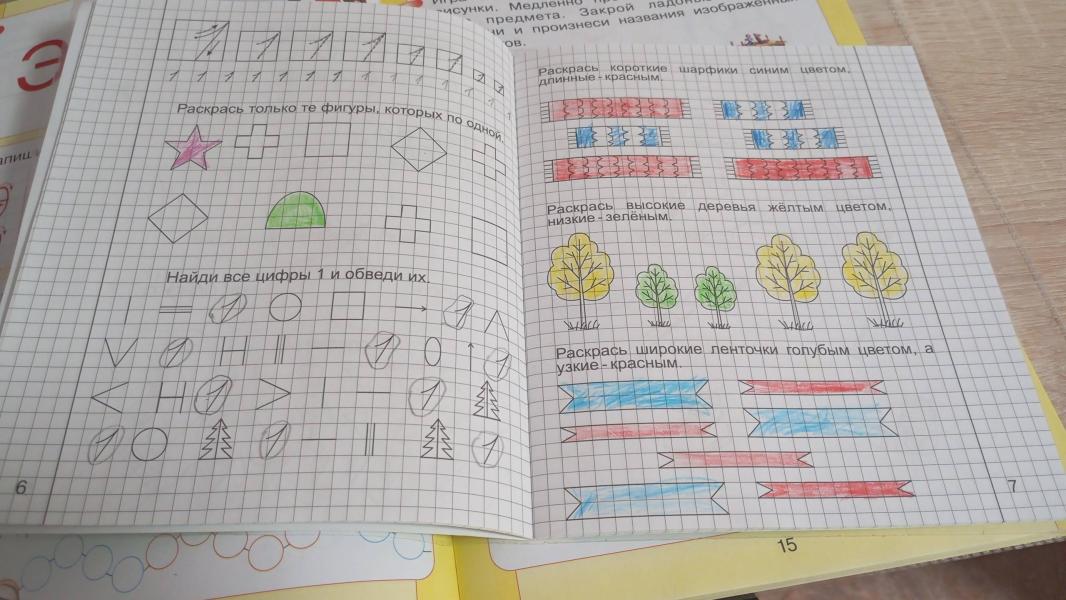 исунки. Медленно
предмета. Закрой
и произнеси названия
Э
1 1 1 1 1 1 1 1
1 1 1 1 1 1 1 1 1 1 1 1 1
Раскрась только те фигуры, которых по одной.
Найди все цифры 1 и обведи их.
1 1
1 1 1
1 1
1 1 1
6
Раскрась короткие шарфики синим цветом,
длинные - красным.
Раскрась высокие деревья жёлтым цветом,
низкие - зелёным.
Раскрась широкие ленточки голубым цветом, а
узкие - красным.
7
15